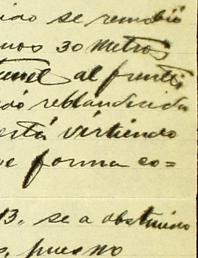 se remobió
30 metros
tunel al frente
reblandecida
está virtiendo
forma co=
13, se a obstruido
pues no